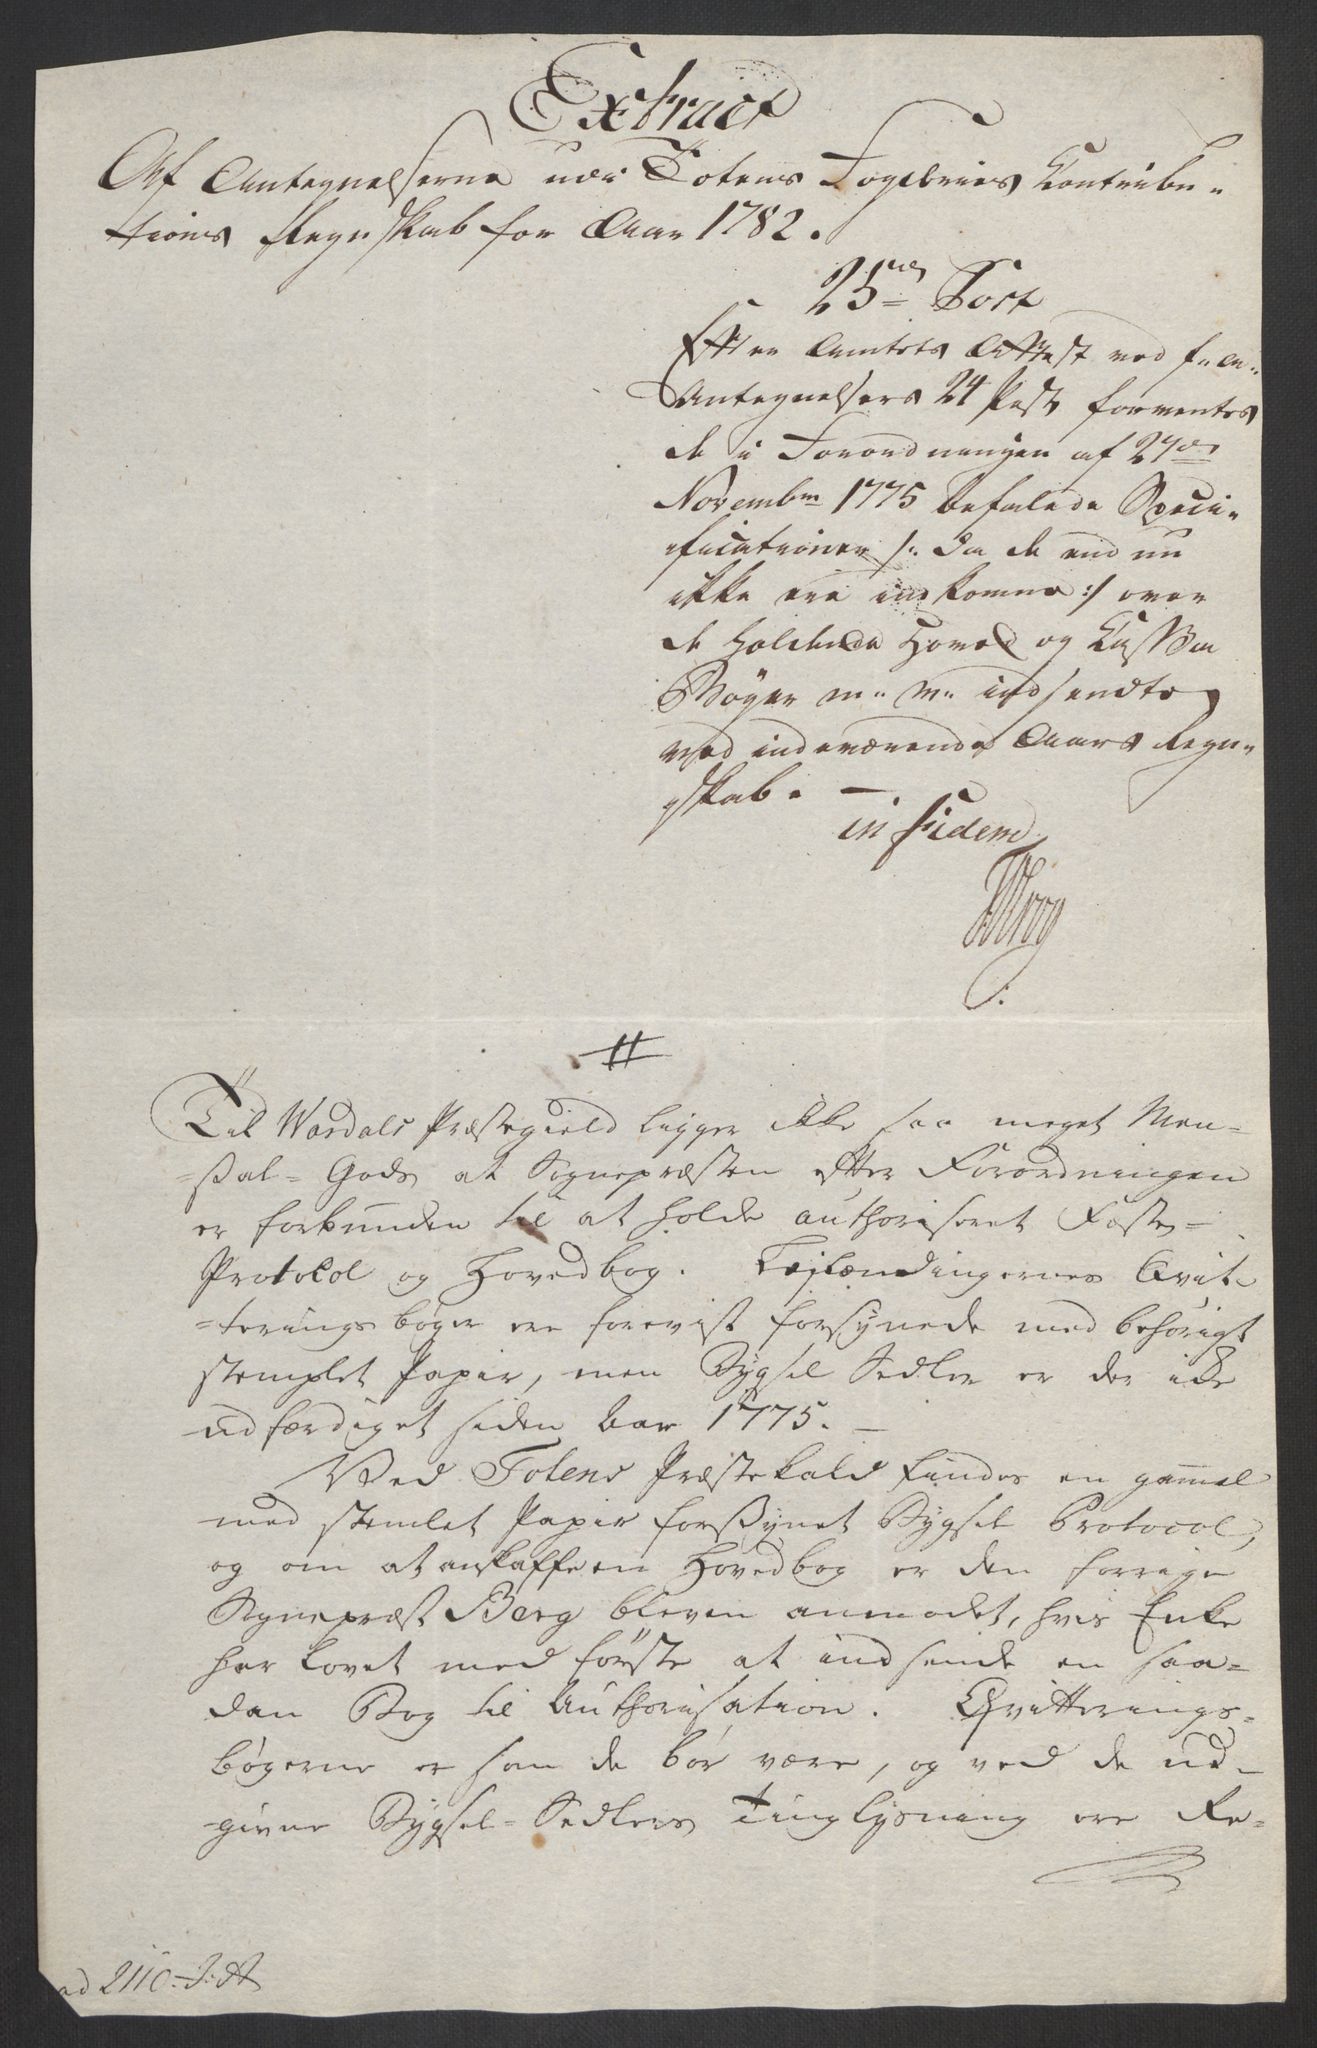 Extract
Af Antegnelserne ved Totens Fogderies Contribu-
tions Regnskab for Aar 1782.
25de Post
Efter Amtets Attest ved f. A.
Antegnelsers 24 Post forventes
de i Forordningen af 27de
Novembr 1775 befalede Speci-
ficationer /: da de end nu
ikke ere indkomne :/ over
de holdende Hoved og Cassa
Bøger m. v. indsendte
ved indeværende Aars Regn-
skab. —
in fidem
Til Wardals Præstegield ligger ikke saa meget Men-
-sal-Gods at Sognepræsten efter Forordningen
er forbunden til at holde authoriseret Fæste-
Protokol og Hovedbog. Leilændingernes Qvit-
-terings bøger ere forevist forsynede med behørigt
stemplet Papir, men Bygsel Sedler er der ikke
udfærdiget siden Aar 1775. —
Ved Totens Præstekald findes en gammel
med stemlet Papir forsynet Bygsel Protocol,
og om at anskaffe en Hovedbog er den forrige
Sognepræst Berg bleven anmodet, hvis Enke
har lovet med første at indsende en saa-
dan Bog til Authorisation. Qvitterings-
bøgerne er som de bør være, og ved de ud-
givne Bygsel-Sedlers Tinglysning ere Re-
ad 2110. J: A